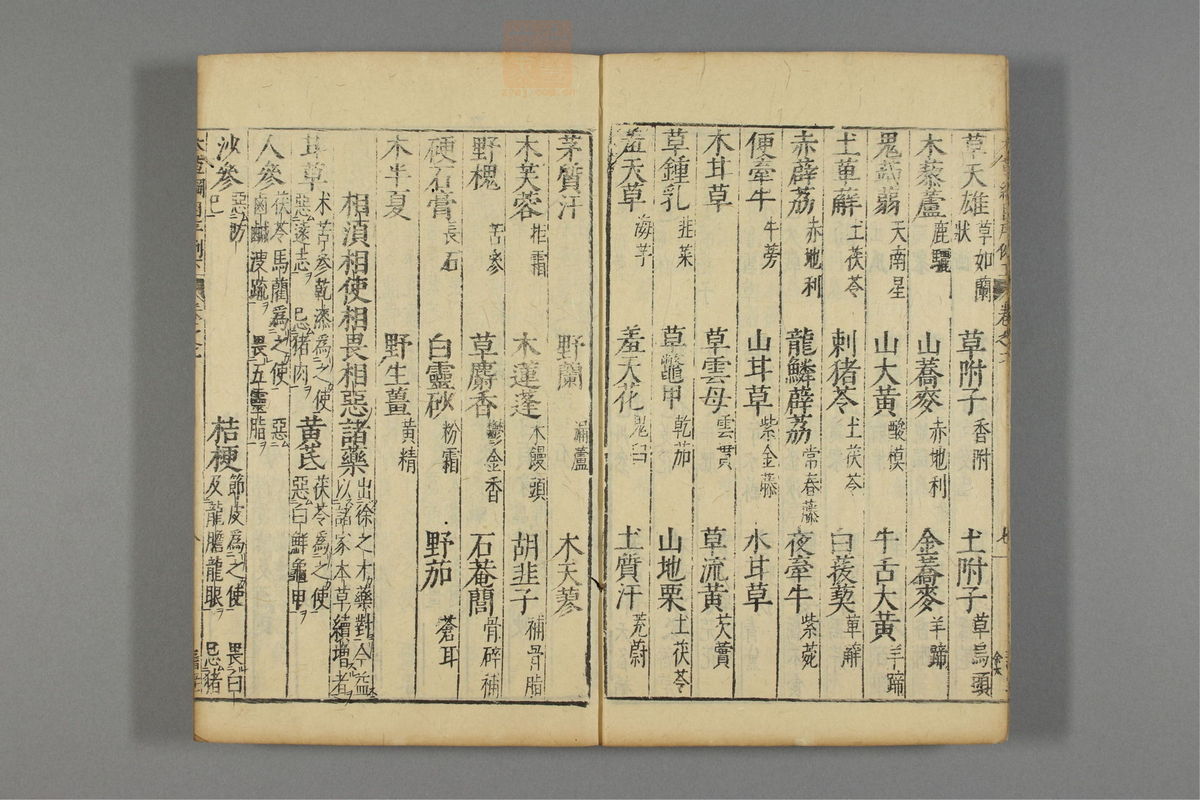 草天雄 草如蘭狀 草附子 香附 土附子 草烏頭
木藜蘆 鹿驪 山蕎麥 赤地利 金蕎麥 羊蹄
鬼蒟蒻 天南星 山大黃 酸模 牛舌大黃 羊蹄
土萆薢 土茯苓 刺猪苓 土茯苓 白菝葜 萆薢
赤薜荔 赤地利 龍鱗薜荔 常春藤 夜牽牛 紫菀
便牽牛 牛蒡 山耳草 紫金藤 水耳草
木耳草 草雲母 雲實 草流黃 芡實
草鍾乳 韭菜 草鼈甲 乾茄 山地栗 土茯苓
羞天草 海芋 羞天花 鬼臼 土質汗 茺蔚
茅質汗 野蘭 漏蘆 木天蓼
木芙蓉 拒霜 木蓮蓬 木饅頭 胡韭子 補骨脂
野槐 苦參 草麝香 鬱金香 石菴䕡 骨碎補
硬石膏 長石 白靈砂 粉霜 野茄 蒼耳
木半夏 野生薑 黃精
相須相使相畏相惡諸藥 出徐之才藥對今益以諸家本草續增者
甘草 朮苦參乾漆爲之使惡遠志忌猪肉 黃芪 茯苓爲之使惡白鮮龜甲
人參 茯苓馬藺爲之使惡鹵鹹溲疏畏五靈脂
沙參 惡防已 桔梗 節皮爲之使畏白及龍膽龍眼忌猪